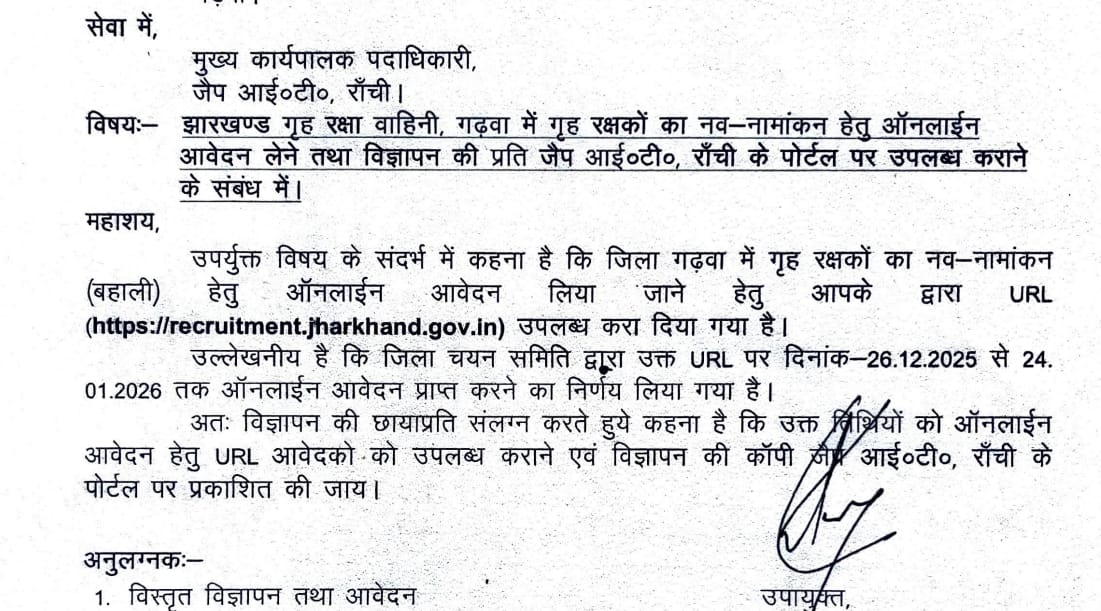 सेवा में,
मुख्य कार्यपालक पदाधिकारी,
जैप आई०टी०, राँची।
विषयः– झारखण्ड गृह रक्षा वाहिनी, गढ़वा में गृह रक्षकों का नव–नामांकन हेतु ऑनलाईन
आवेदन लेने तथा विज्ञापन की प्रति जैप आई०टी०, राँची के पोर्टल पर उपलब्ध कराने
के संबंध में।
महाशय,
उपर्युक्त विषय के संदर्भ में कहना है कि जिला गढ़वा में गृह रक्षकों का नव–नामांकन
(बहाली) हेतु ऑनलाईन आवेदन लिया जाने हेतु आपके द्वारा URL
(https://recruitment.jharkhand.gov.in) उपलब्ध करा दिया गया है।
उल्लेखनीय है कि जिला चयन समिति द्वारा उक्त URL पर दिनांक–26.12.2025 से 24.
01.2026 तक ऑनलाईन आवेदन प्राप्त करने का निर्णय लिया गया है।
अतः विज्ञापन की छायाप्रति संलग्न करते हुये कहना है कि उक्त तिथियों को ऑनलाईन
आवेदन हेतु URL आवेदको को उपलब्ध कराने एवं विज्ञापन की कॉपी जैप आई०टी०, राँची के
पोर्टल पर प्रकाशित की जाय।
अनुलग्नकः–
1. विस्तृत विज्ञापन तथा आवेदन
उपायुक्त,